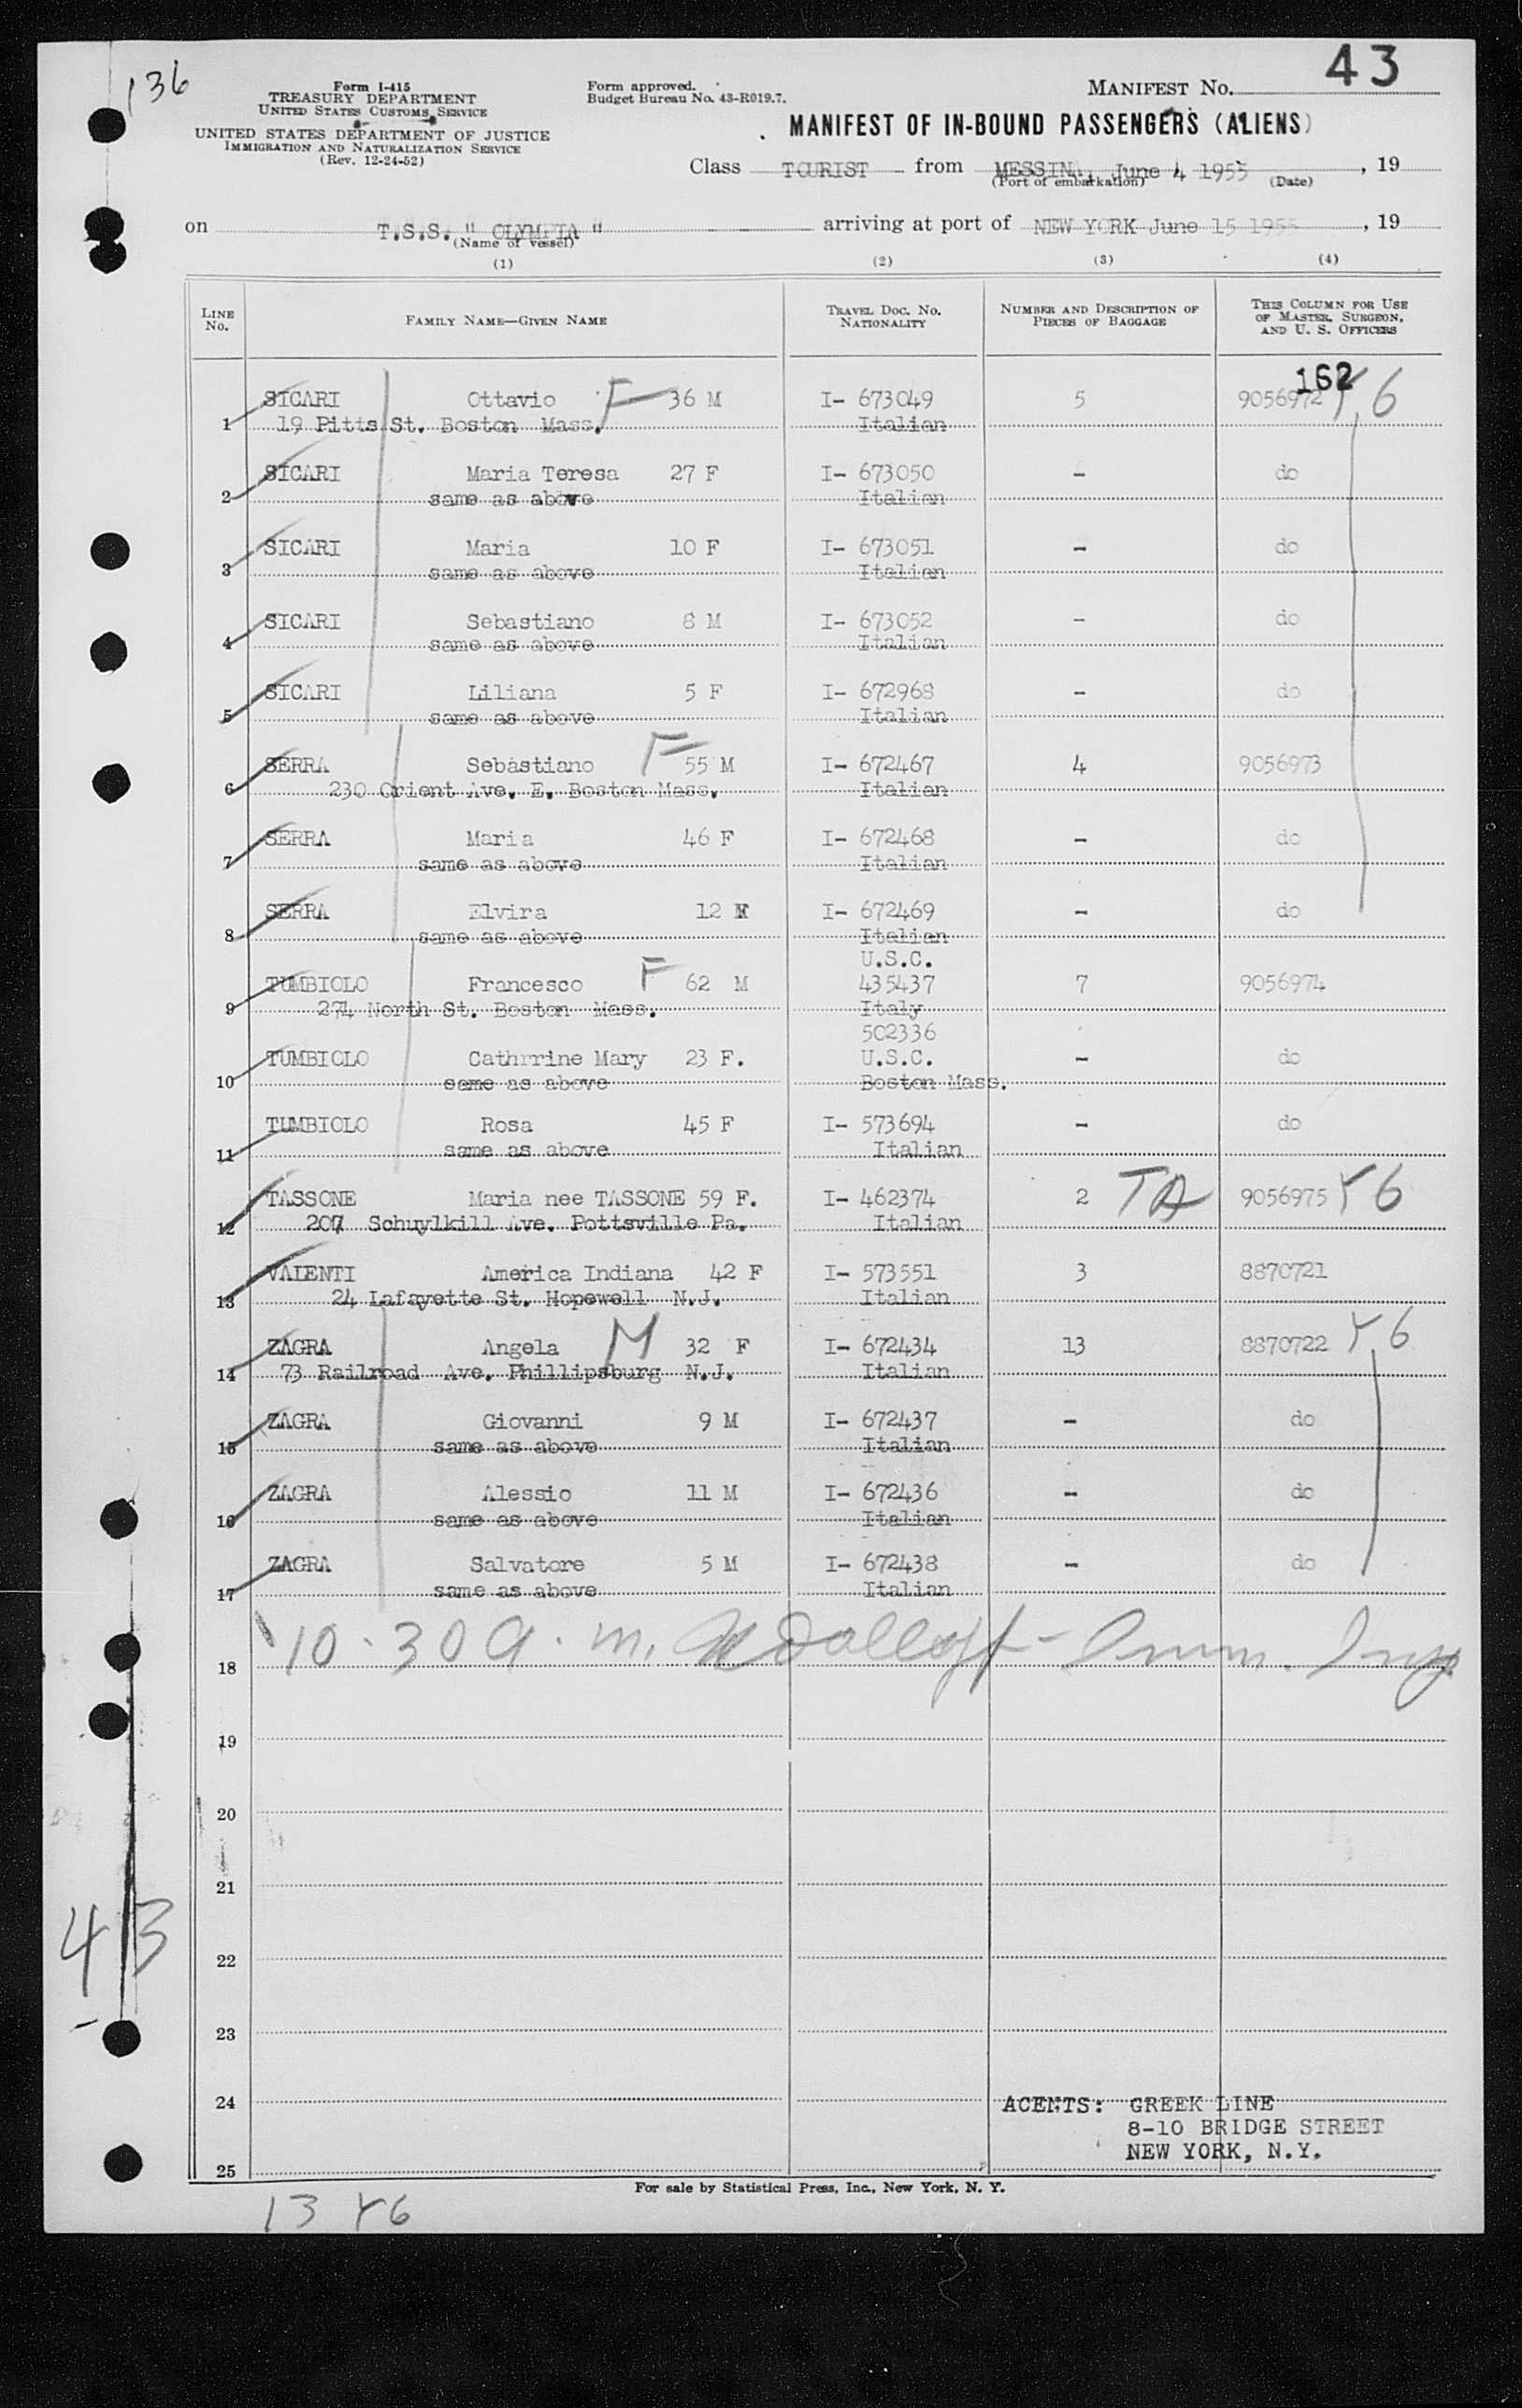 136
43
Form I-415
TREASURY DEPARTMENT
UNITED STATES CUSTOMS SERVICE
UNITED STATES DEPARTMENT OF JUSTICE
IMMIGRATION AND NATURALIZATION SERVICE
(Rev. 12-24-52)
Form approved.
Budget Bureau No. 43-R019.7.
MANIFEST No.
MANIFEST OF IN-BOUND PASSENGERS (ALIENS)
Class TOURIST from MESSINA, June 4 1955, 19
(Port of embarkation) (Date)
on T.S.S. " OLYMPIA " arriving at port of NEW YORK June 15 1955, 19
(Name of vessel)
(1) (2) (3) (4)
LINE No. FAMILY NAME—GIVEN NAME TRAVEL DOC. No. NATIONALITY NUMBER AND DESCRIPTION OF PIECES OF BAGGAGE THIS COLUMN FOR USE OF MASTER, SURGEON, AND U. S. OFFICERS
162
SICARI Ottavio F 36 M I- 673049 5 9056972 Y6
1 19 Pitts St. Boston Mass. Italian
SICARI Maria Teresa 27 F I- 673050 - do
2 same as above Italian
SICARI Maria 10 F I- 673051 - do
3 same as above Italian
SICARI Sebastiano 8 M I- 673052 - do
4 same as above Italian
SICARI Liliana 5 F I- 672968 - do
5 same as above Italian
SERRA Sebastiano F 55 M I- 672467 4 9056973
6 230 Orient Ave. E. Boston Mass. Italian
SERRA Maria 46 F I- 672468 - do
7 same as above Italian
SERRA Elvira 12 I- 672469 - do
8 same as above Italian
U.S.C.
TUMBIOLO Francesco F 62 M 435437 7 9056974
9 274 North St. Boston Mass. Italy
502336
TUMBIOLO Cathrrine Mary 23 F. U.S.C. - do
10 same as above Boston Mass.
TUMBIOLO Rosa 45 F I- 573694 - do
11 same as above Italian
TASSONE Maria nee TASSONE 59 F. I- 462374 2 TA 9056975 Y6
12 207 Schuylkill Ave. Pottsville Pa. Italian
VALENTI America Indiana 42 F I- 573551 3 8870721
13 24 Lafayette St. Hopewell N.J. Italian
ZAGRA Angela M 32 F I- 672434 13 8870722 Y6
14 73 Railroad Ave. Phillipsburg N.J. Italian
ZAGRA Giovanni 9 M I- 672437 - do
15 same as above Italian
ZAGRA Alessio 11 M I- 672436 - do
16 same as above Italian
ZAGRA Salvatore 5 M I- 672438 - do
17 same as above Italian
10-30 a.m. Imm. Insp.
18
19
20
21
43
22
23
24 AGENTS: GREEK LINE
8-10 BRIDGE STREET
NEW YORK, N.Y.
25
For sale by Statistical Press, Inc., New York, N. Y.
13 Y6